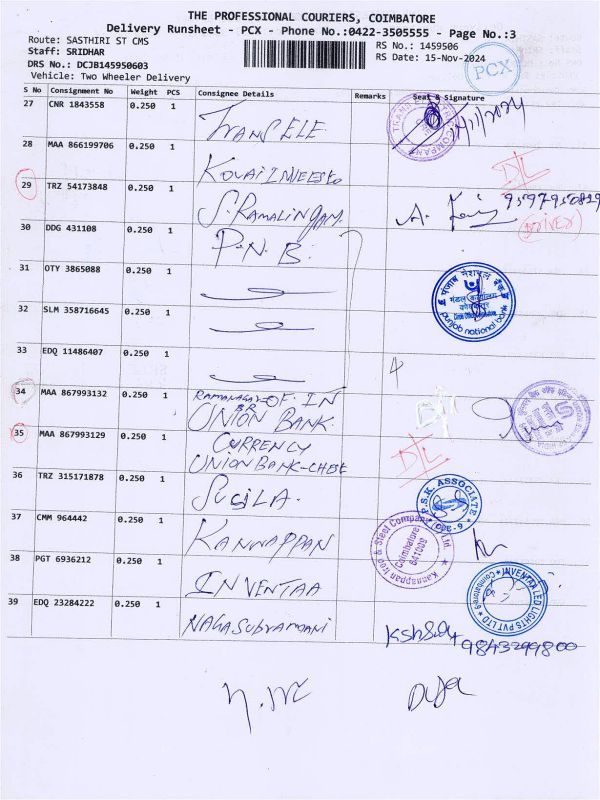 THE PROFESSIONAL COURIERS, COIMBATORE
Delivery Runsheet - PCX - Phone No.:0422-3505555 - Page No.:3
Route: SASTHIRI ST CMS
RS No.: 1459506
Staff: SRIDHAR
RS Date: 15-Nov-2024
DRS No.: DCJB145950603
PCX
Vehicle: Two Wheeler Delivery
S No Consignment No Weight PCS Consignee Details Remarks Seal & Signature
27 CNR 1843558 0.250 1 TRANS ELE
28 MAA 866199706 0.250 1
D/L
29 TRZ 54173848 0.250 1 S. RAMALINGAM
(DRIVER)
30 DDG 431108 0.250 1 P.N.B.
31 OTY 3865088 0.250 1
पंजाब नैशनल बैंक
punjab national bank
32 SLM 358716645 0.250 1
33 EDQ 11486407 0.250 1
4
34 MAA 867993132 0.250 1 OF IN
UNION BANK
35 MAA 867993129 0.250 1 CURRENCY
UNION BANK-CHEST
D/L
36 TRZ 315171878 0.250 1 SUSILA.
P.S.K. ASSOCIATE
37 CMM 964442 0.250 1 KANNAPPAN
Kannappan Iron & Steel Company Pvt. Ltd.
Coimbatore
641009
38 PGT 6936212 0.250 1 INVENTAA
INVENTAA LED LIGHTS PVT LTD
39 EDQ 23284222 0.250 1 NAGASUBRAMANI
9843299800